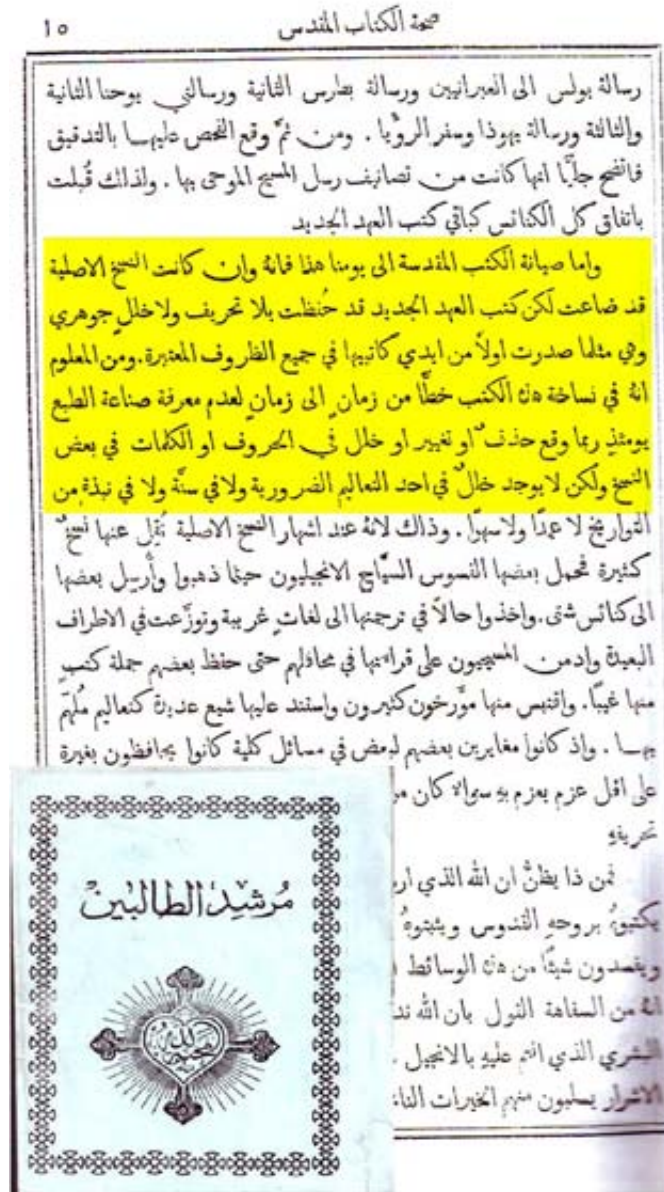 صحة الكتاب المقدس
١٥
رسالة بولس الى العبرانيين ورسالة بطرس الثانية ورسالتي يوحنا الثانية
والثالثة ورسالة يهوذا وسفر الرؤيا . ومن ثمَّ وقع الفحص عليها بالتدقيق
فاتضح جليًّا انها كانت من تصانيف رسل المسيح الموحى بها . ولذلك قُبلت
باتفاق كل الكنائس كباقي كتب العهد الجديد
واما صيانة الكتب المقدسة الى يومنا هذا فانهُ وان كانت النسخ الاصلية
قد ضاعت لكن كتب العهد الجديد قد حُفظت بلا تحريف ولا خللٍ جوهري
وهي مثلما صدرت اولاً من ايدي كاتبيها في جميع الظروف المعتبرة. ومن المعلوم
انهُ في نساخة هذه الكتب خطًّا من زمانٍ الى زمانٍ لعدم معرفة صناعة الطبع
يومئذٍ ربما وقع حذفٌ او تغيير او خلل في الحروف او الكلمات في بعض
النسخ ولكن لا يوجد خللٌ في احد التعاليم الضرورية ولا في سنَّة ولا في نبذةٍ من
التواريخ لا عمدًا ولا سهوًا . وذلك لانهُ عند اشهار النسخ الاصلية نُقِل عنها نسخٌ
كثيرة فحمل بعضها القسوس السيَّاح الانجيليون حيثما ذهبوا وأُرسل بعضها
الى كنائس شتى. واخذوا حالاً في ترجمتها الى لغاتٍ غريبة وتوزَّعت في الاطراف
البعيدة وادمن المسيحيون على قراءتها في محافلهم حتى حفظ بعضهم جملة كتبٍ
منها غيبًا. واقتبس منها مؤَرخون كثيرون واستند عليها شيع عديدة كتعاليم مُلهَم
بها . واذ كانوا مغايرين بعضهم لبعض في مسائل كلية كانوا يحافظون بغيرة
على اقل عزم يعزم بهِ سواءٌ كان
تحريفهِ
فمن ذا يظنُّ ان الله الذي
يكتبوهُ بروحهِ القدوس ويثبتوهُ
ويفسدون شيئًا من هذه الوسائط
انهُ من السفاهة القول بان الله
البشري الذي انعم عليهِ بالانجيل
الاشرار يسلبون منهم الخيرات
مُرشد الطالبين
الله محبة